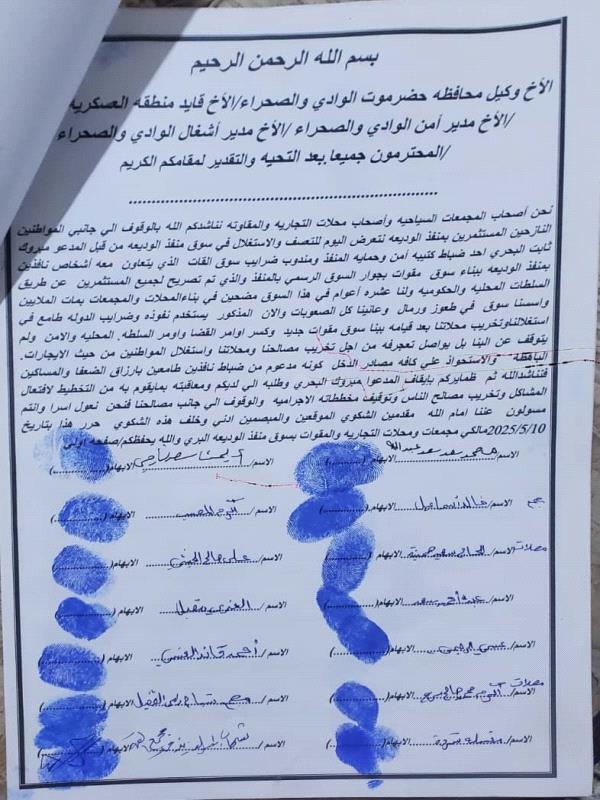 بسم الله الرحمن الرحيم
الأخ وكيل محافظه حضرموت الوادي والصحراء/الأخ قايد منطقه العسكريه
/الأخ مدير أمن الوادي والصحراء /الأخ مدير أشغال الوادي والصحراء
/المحترمون جميعا بعد التحيه والتقدير لمقامكم الكريم
نحن أصحاب المجمعات السياحيه وأصحاب محلات التجاريه والمقاوته نناشدكم الله بالوقوف الي جانبي المواطنين
النازحين المستثمرين بمنفذ الوديعه نتعرض اليوم للتصف والاستغلال في سوق منفذ الوديعه من قبل المدعو مبروك
ثابت البحري احد ضباط كتيبه أمن وحمايه المنفذ ومندوب ضرايب سوق القات الذي يتعاون معه أشخاص نافذين
بمنفذ الوديعه ببناء سوق مقوات بجوار السوق الرسمي بالمنفذ والذي تم تصريح لجميع المستثمرين عن طريق
السلطات المحليه والحكوميه ولنا عشره أعوام في هذا السوق مضحين في بناء المحلات والمجمعات بمات الملايين
وأسسنا سوق في طعوز ورمال وعانينا كل الصعوبات والان المذكور يستخدم نفوذه وضرايب الدوله طامع في
استغلالنا وتخريب محلاتنا بعد قيامه ببنا سوق مقوات جديد وكسر اوامر القضا واومر السلطه. المحليه والامن ولم
يتوقف عن البنا بل يواصل تعجرفه من اجل تخريب مصالحنا ومحلاتنا واستغلال المواطنين من حيث الايجارات.
الباهظه والاستحواذ علي كافه مصادر الدخل كونه مدعوم من ضباط نافذين طامعين بارزاق الضعفا والمساكين
فنناشدالله ثم ظمايركم بايقاف المدعوا مبروك البحري وطلبه الي لديكم ومعاقبته بمايقوم به من التخطيط لافتعال
المشاكل وتخريب مصالح الناس وتوقيف مخططاته الاجراميه والوقوف الي جانب مصالحنا فنحن نعول اسرا وانتم
مسولون عننا امام الله مقدمين الشكوي الموقعين والمبصمين ادني وخلف هذه الشكوي حرر هذا بتاريخ
2025/5/10مالكي مجمعات ومحلات التجاريه والمقوات بسوق منفذ الوديعه البري والله يحفظكم/صفحه اولى
الاسم/ محمد سعد سعد عبدالله الاسم/ الابهام(
الاسم/ خالد اسماعيل الاسم/ الابهام(
محلات الاسم/ الاسم/ علي صالح الابهام(
الاسم/ عبده احمد سعد الاسم/ الابهام(
الاسم/ الابهام( الاسم/ أحمد قائد العنسي الابهام(
محلات الاسم/ الابهام( الاسم/ الابهام(
الاسم/ الابهام( الاسم/ الابهام(